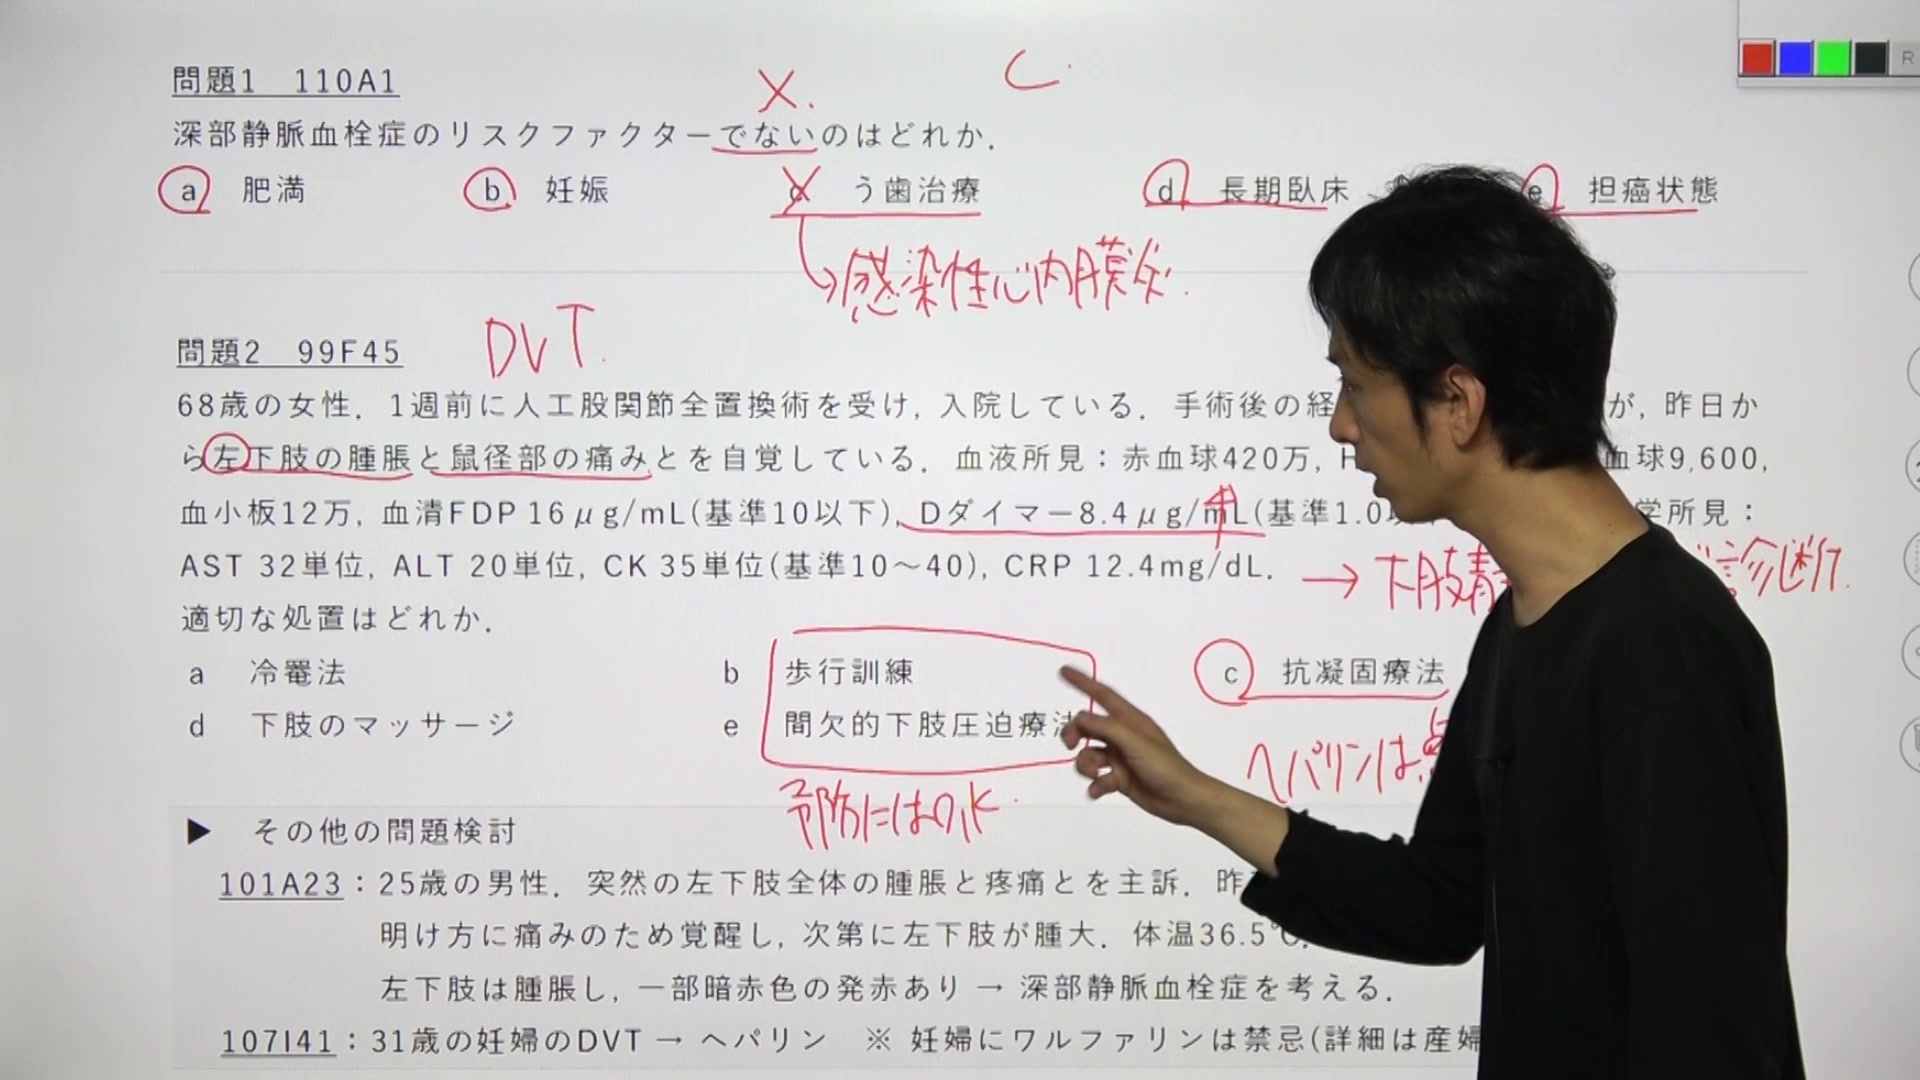 問題1 110A1
X.
C
深部静脈血栓症のリスクファクターでないのはどれか.
a 肥満 b 妊娠 c う歯治療 d 長期臥床 e 担癌状態
感染性心内膜炎.
R
問題2 99F45
DVT.
68歳の女性. 1週前に人工股関節全置換術を受け, 入院している. 手術後の経 が, 昨日か
ら左下肢の腫脹と鼠径部の痛みとを自覚している. 血液所見：赤血球420万, 血球9,600,
血小板12万, 血清FDP 16μg/mL(基準10以下), Dダイマー8.4μg/mL(基準1.0 学所見：
AST 32単位, ALT 20単位, CK 35単位(基準10〜40), CRP 12.4mg/dL.
→ 下肢静 診断.
適切な処置はどれか.
a 冷罨法 b 歩行訓練 c 抗凝固療法
d 下肢のマッサージ e 間欠的下肢圧迫療法
ヘパリンは
予防にはOK
▶ その他の問題検討
101A23：25歳の男性. 突然の左下肢全体の腫脹と疼痛とを主訴. 昨
明け方に痛みのため覚醒し, 次第に左下肢が腫大. 体温36.5℃.
左下肢は腫脹し, 一部暗赤色の発赤あり → 深部静脈血栓症を考える.
107I41：31歳の妊婦のDVT → ヘパリン ※ 妊婦にワルファリンは禁忌(詳細は産婦